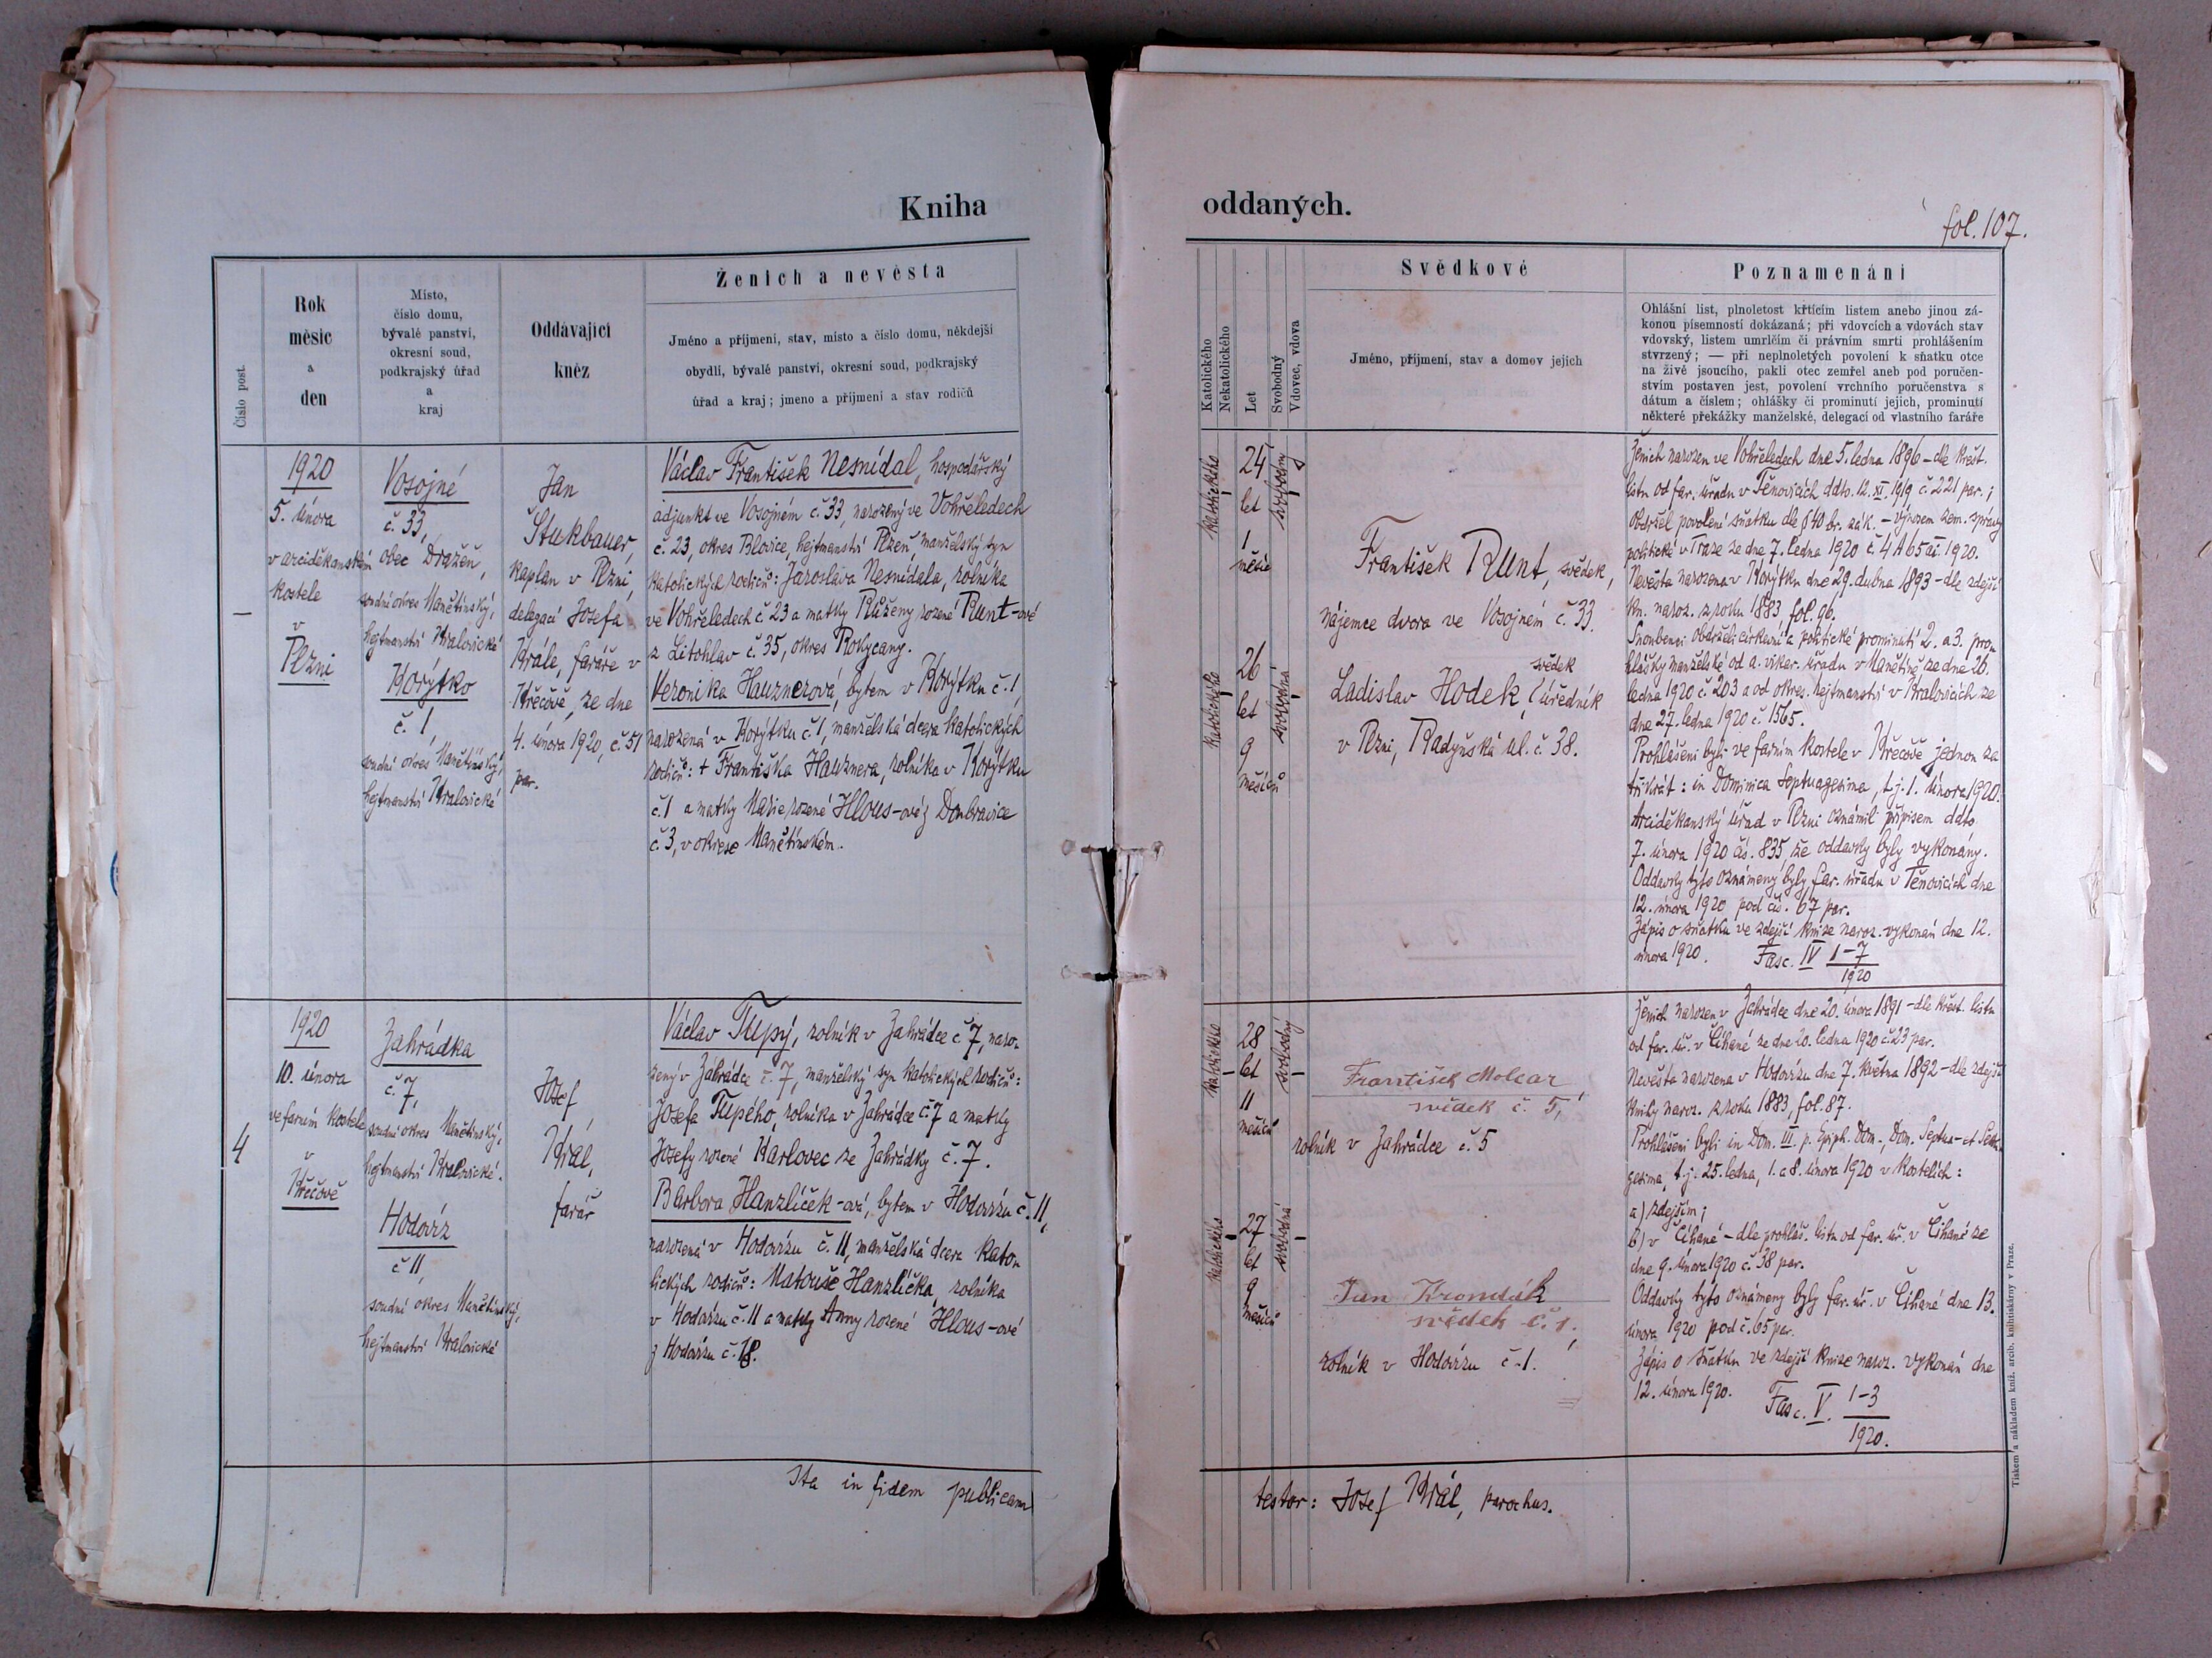 Kniha
Číslo post.
Rok
měsíc
a
den
Místo,
číslo domu,
bývalé panství,
okresní soud,
podkrajský úřad
a
kraj
Oddávající
kněz
Ženich a nevěsta
Jméno a příjmení, stav, místo a číslo domu, někdejší
obydlí, bývalé panství, okresní soud, podkrajský
úřad a kraj; jmeno a příjmení a stav rodičů
–
1920
5. února
v arciděkanském
kostele
v
Plzni
Vosojné
č. 33,
obec Dražeň,
soudní okres Manětínský,
hejtmanství Kralovické
Korýtko
č. 1,
soudní okres Manětínský,
hejtmanství Kralovické
Jan
Štukbauer,
kaplan v Plzni,
delegací Josefa
Krále, faráře v
Křečově, ze dne
4. února 1920, č. 51
par.
Václav František Nesnídal, hospodářský
adjunkt ve Vosojném č. 33, narozený ve Vohřeledech
č. 23, okres Blovice, hejtmanství Plzeň, manželský syn
katolických rodičů: Jaroslava Nesnídala, rolníka
ve Vohřeledech č. 23 a matky Růženy rozené Runt-ové
z Litohlav č. 35, okres Rokycany.
Veronika Hauznerová, bytem v Korýtku č. 1,
narozená v Korýtku č. 1, manželská dcera katolických
rodičů: + Františka Hauznera, rolníka v Korýtku
č. 1 a matky Marie rozené Hlous-ové z Doubravice
č. 3, v okrese Manětínském.
4
1920
10. února
ve farním kostele
v
Křečově
Zahrádka
č. 7,
soudní okres Manětínský,
hejtmanství Kralovické.
Hodovíz
č. 11,
soudní okres Manětínský,
hejtmanství Kralovické
Josef
Král,
farář
Václav Tupý, rolník v Zahrádce č. 7, naro-
zený v Zahrádce č. 7, manželský syn katolických rodičů:
Josefa Tupého, rolníka v Zahrádce č. 7 a matky
Josefy rozené Karlovec ze Zahrádky č. 7.
Barbora Hanzlíček-ová, bytem v Hodovízu č. 11,
narozená v Hodovízu č. 11, manželská dcera kato-
lických rodičů: Matouše Hanzlíčka, rolníka
v Hodovízu č. 11 a matky Anny rozené Hlous-ové
z Hodovízu č. 18.
Ita in fidem publicam
oddaných.
fol. 107.
Katolického
Nekatolického
Let
Svobodný
Vdovec, vdova
Svědkové
Jméno, příjmení, stav a domov jejich
Poznamenání
Ohlášní list, plnoletost křtícím listem anebo jinou zá-
konou písemností dokázaná; při vdovcích a vdovách stav
vdovský, listem umrlčím či právním smrti prohlášením
stvrzený; — při neplnoletých povolení k sňatku otce
na živě jsoucího, pakli otec zemřel aneb pod poručen-
stvím postaven jest, povolení vrchního poručenstva s
dátum a číslem; ohlášky či prominutí jejich, prominutí
některé překážky manželské, delegací od vlastního faráře
katolického
24
let
1
měsíc
svobodný
katolického
26
let
9
měsíců
svobodná
František Runt, svědek,
nájemce dvora ve Vosojném č. 33.
svědek
Ladislav Hodek, úředník
v Plzni, Radyňská ul. č. 38.
Ženich narozen ve Vohřeledech dne 5. ledna 1896 – dle křest.
listu od far. úřadu v Těnovicích ddto. 12. XI. 1919 č. 221 par.;
Obdržel povolení sňatku dle § 40 br. zák. – výnosem zem. správy
politické v Praze ze dne 7. ledna 1920 č. 4 A 65 ai. 1920.
Nevěsta narozena v Korýtku dne 29. dubna 1893 – dle zdejší
kn. naroz. z roku 1883, fol. 96.
Snoubenci obdrželi církevní a politické prominutí 2. a 3. pro-
hlášky manželské od a. vikar. úřadu v Manětíně ze dne 26.
ledna 1920 č. 203 a od okres. hejtmanství v Kralovicích ze
dne 27. ledna 1920 č. 1565.
Prohlášeni byli ve farním kostele v Křečově jednou za
třikrát: in Dominica Septuagesima, t. j. 1. února 1920.
Arciděkanský úřad v Plzni oznámil přípisem ddto.
7. února 1920 čís. 835, že oddavky byly vykonány.
Oddavky tyto oznámeny byly far. úřadu v Těnovicích dne
12. února 1920 pod čís. 67 par.
Zápis o sňatku ve zdejší knize naroz. vykonán dne 12.
února 1920. Fasc. IV 1–7
1920
katolického
28
let
11
měsíců
svobodný
katolického
27
let
9
měsíců
svobodná
František Molcar
svědek č. 5,
rolník v Zahrádce č. 5
Jan Krondák
svědek č. 1.,
rolník v Hodovízu č. 1.
Ženich narozen v Zahrádce dne 20. února 1891 – dle křest. listu
od far. úř. v Číhané ze dne 20. ledna 1920 č. 23 par.
Nevěsta narozena v Hodovízu dne 7. května 1892 – dle zdejší
knihy naroz. z roku 1883, fol. 87.
Prohlášeni byli in Dom. III. p. Epiph. Dom., Dom. Septua- et Sexa-
gesima, t. j. 25. ledna, 1. a 8. února 1920 v kostelích:
a) zdejším;
b) v Číhané – dle prohláš. listu od far. úř. v Číhané ze
dne 9. února 1920 č. 38 par.
Oddavky tyto oznámeny byly far. úř. v Číhané dne 13.
února 1920 pod č. 65 par.
Zápis o sňatku ve zdejší knize naroz. vykonán dne
12. února 1920. Fasc. V. 1–3
1920.
testor: Josef Král, parochus.
Tiskem a nákladem kníž. arcib. knihtiskárny v Praze.